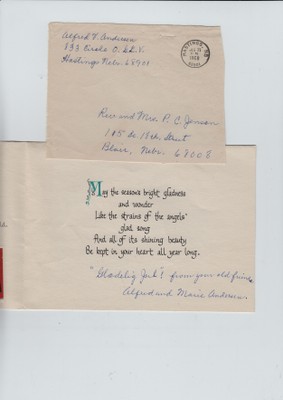 Alfred V. Andersen
Hastings Nebr. 68901
HASTINGS, NE
Rev and Mrs. P. C. Jensen
115 So. 18th Street
Blair, Nebr. 68008
May the season's bright gladness
and wonder
Like the strains of the angels'
glad song
And all of its shining beauty
Be kept in your heart all year long.
"Glædelig Jul"! from your old friends
Alfred and Maria Andersen.